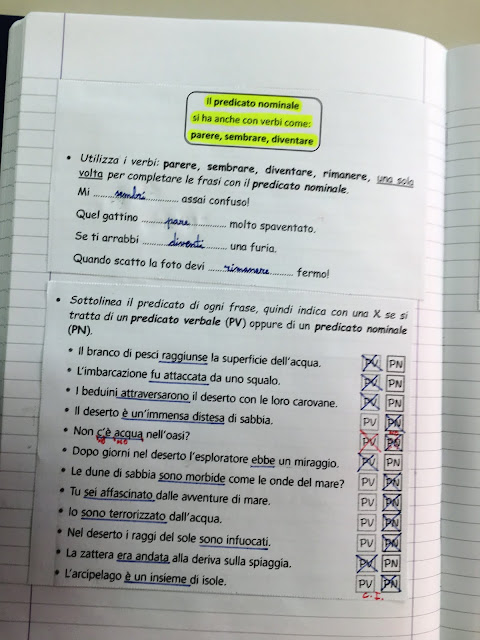 Il predicato nominale
si ha anche con verbi come:
parere, sembrare, diventare
• Utilizza i verbi: parere, sembrare, diventare, rimanere, una sola
volta per completare le frasi con il predicato nominale.
Mi ......sembri.................. assai confuso!
Quel gattino ........pare............... molto spaventato.
Se ti arrabbi .........diventi......... una furia.
Quando scatto la foto devi ......rimanere........ fermo!
• Sottolinea il predicato di ogni frase, quindi indica con una X se si
tratta di un predicato verbale (PV) oppure di un predicato nominale
(PN).
• Il branco di pesci raggiunse la superficie dell'acqua. PV PN
• L'imbarcazione fu attaccata da uno squalo. PV PN
• I beduini attraversarono il deserto con le loro carovane. PV PN
• Il deserto è un'immensa distesa di sabbia. PV PN
• Non c'è acqua nell'oasi? PV PN
• Dopo giorni nel deserto l'esploratore ebbe un miraggio. PV PN
• Le dune di sabbia sono morbide come le onde del mare? PV PN
• Tu sei affascinato dalle avventure di mare. PV PN
• Io sono terrorizzato dall'acqua. PV PN
• Nel deserto i raggi del sole sono infuocati. PV PN
• La zattera era andata alla deriva sulla spiaggia. PV PN
• L'arcipelago è un insieme di isole. PV PN
C. I.